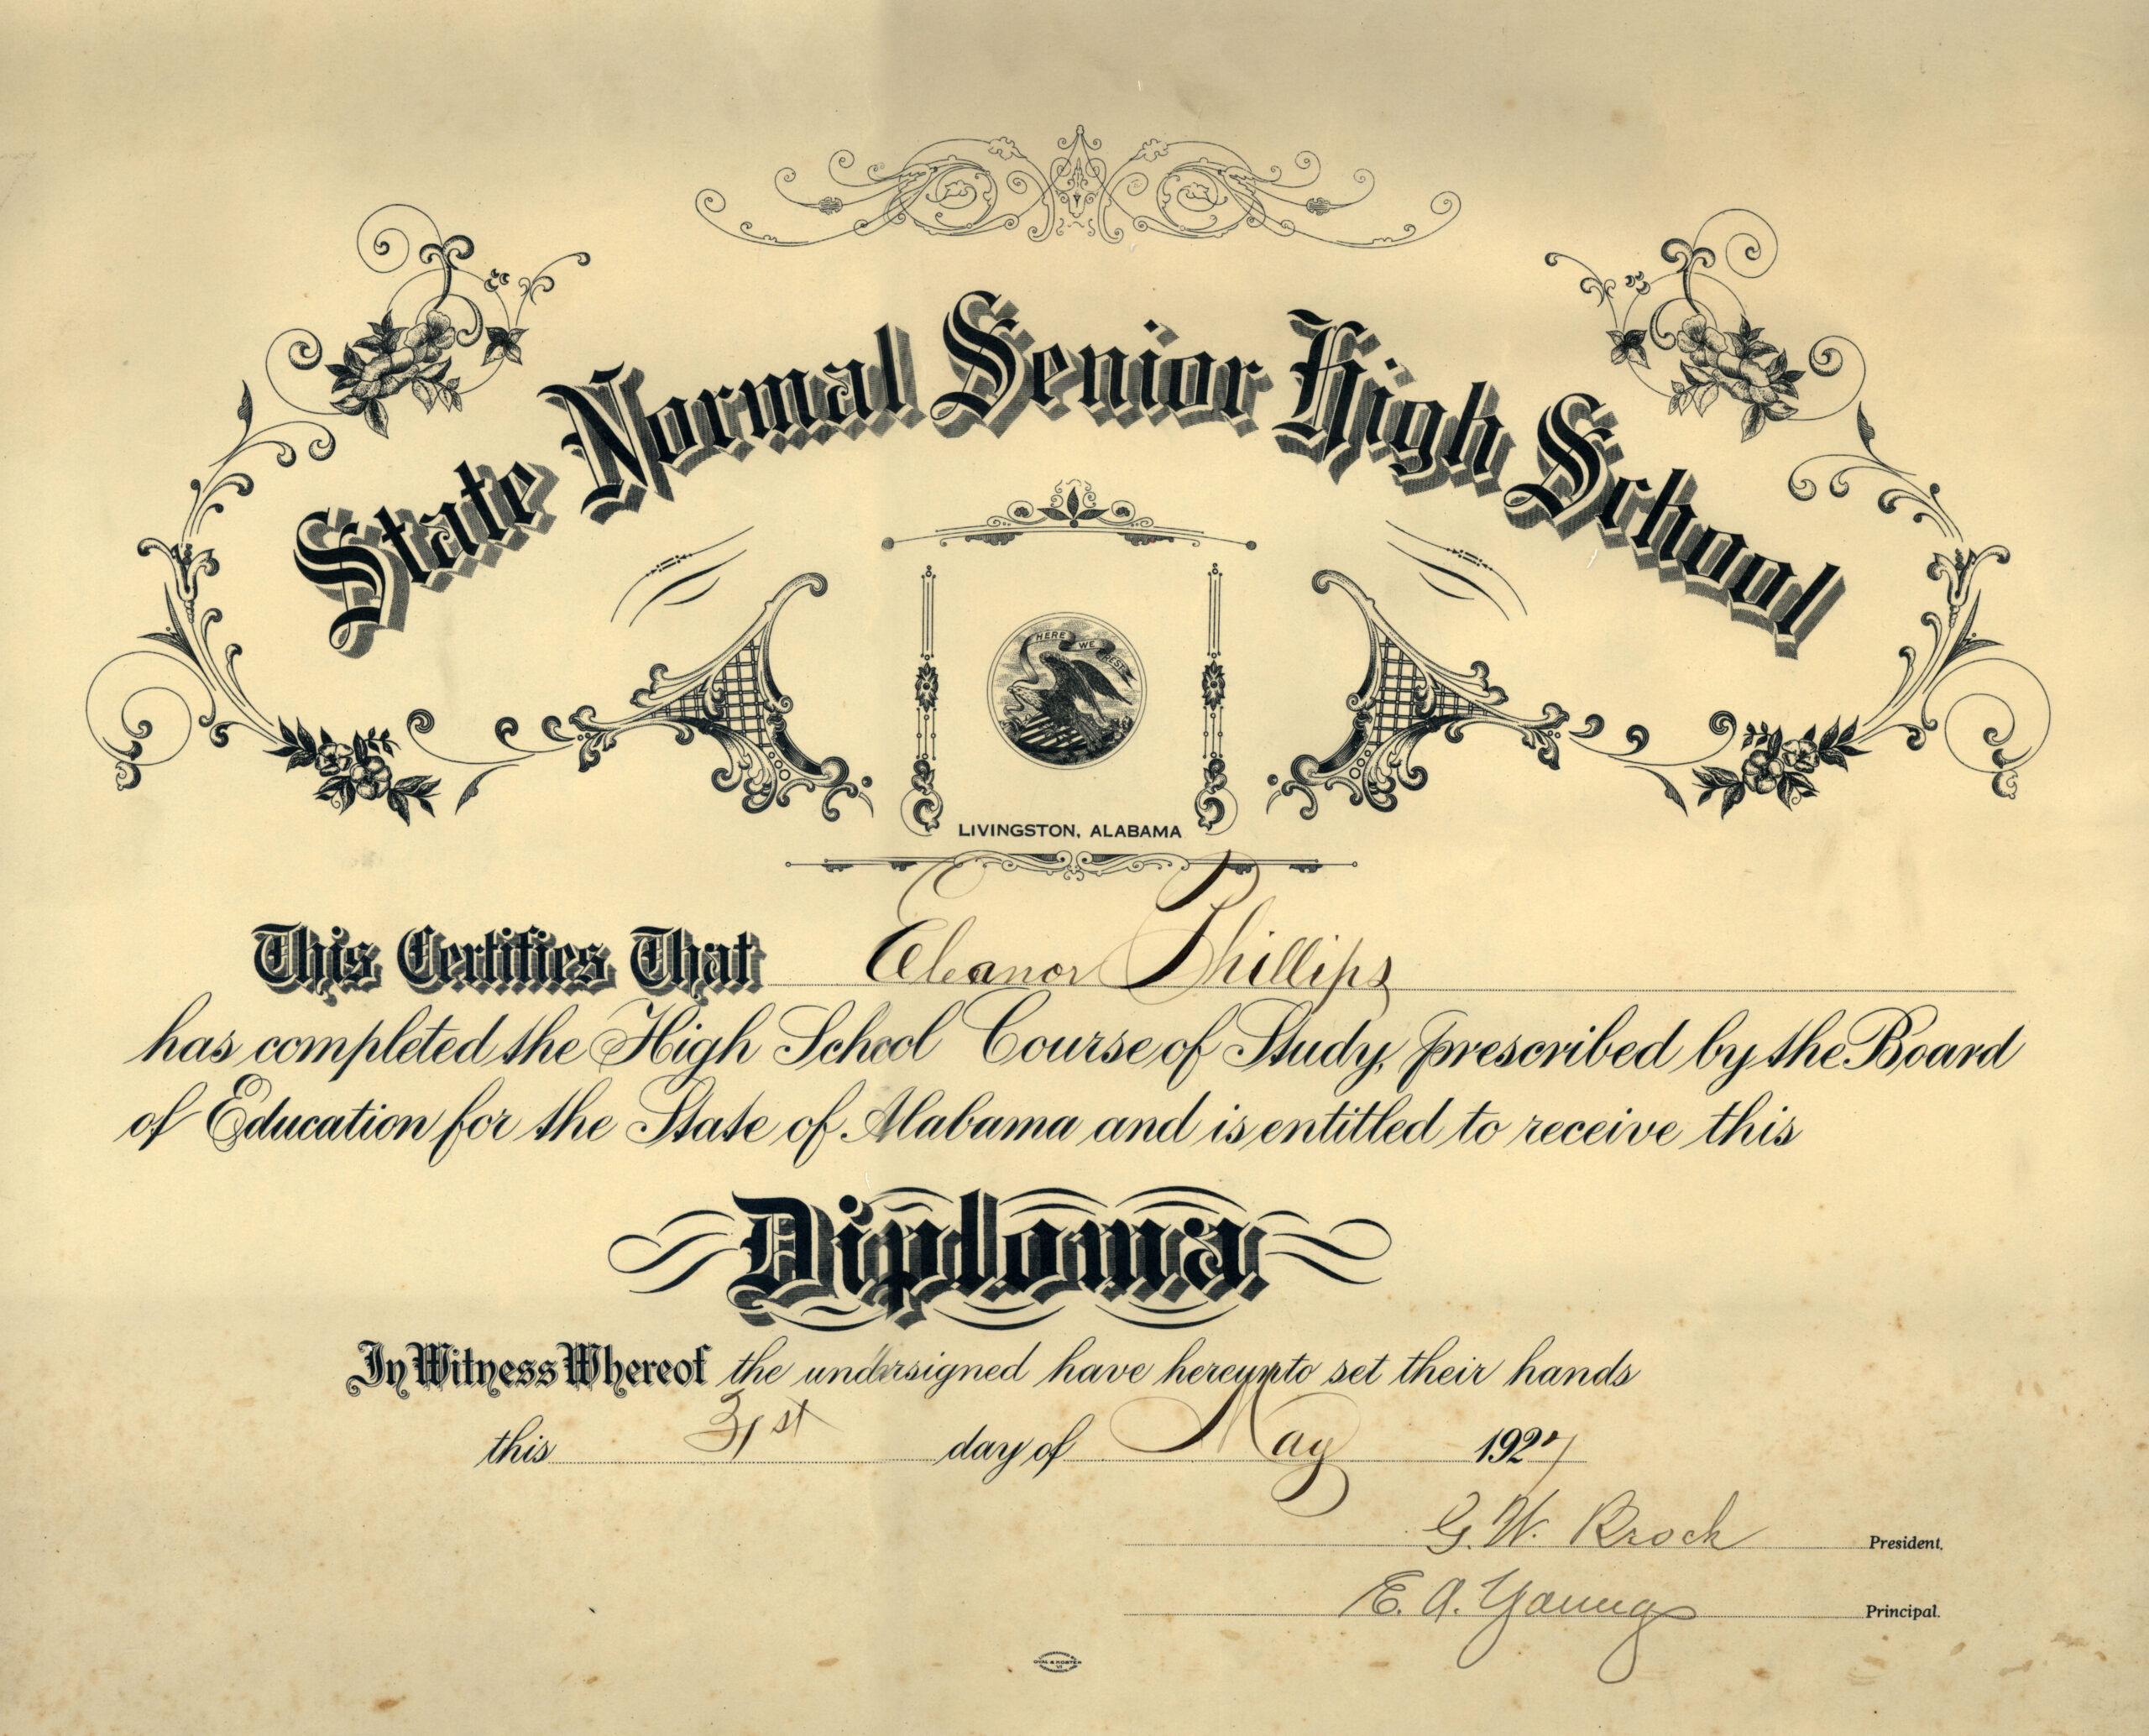 State Normal Senior High School
HERE WE REST
LIVINGSTON, ALABAMA
This Certifies That Eleanor Phillips
has completed the High School Course of Study, prescribed by the Board
of Education for the State of Alabama and is entitled to receive this
Diploma
In Witness Whereof the undersigned have hereunto set their hands
this 31st day of May 1927
G. W. Brock President.
E. A. Young Principal.